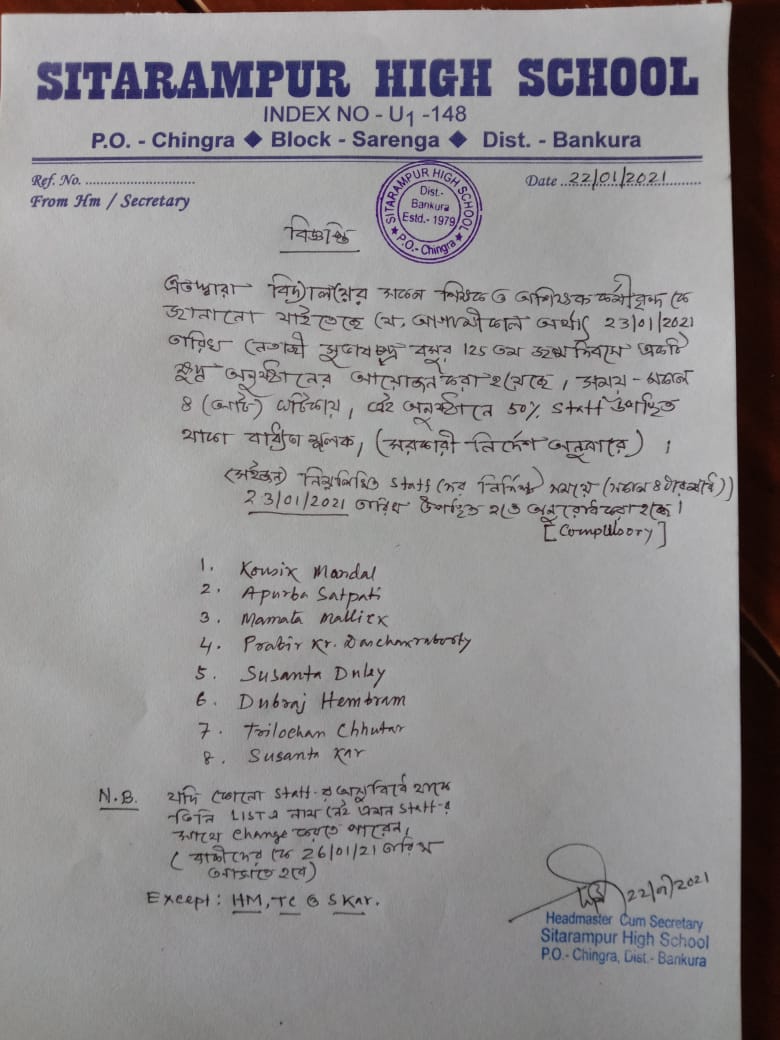 SITARAMPUR HIGH SCHOOL
INDEX NO - U1 -148
P.O. - Chingra ◆ Block - Sarenga ◆ Dist. - Bankura
Ref. No. ............................
Date ..22/01/2021........
From Hm / Secretary
SITARAMPUR HIGH SCHOOL
Dist.-
Bankura
Estd.- 1979
★ P.O.- Chingra ★
বিজ্ঞপ্তি
এতদ্বারা বিদ্যালয়ের সকল শিক্ষক ও অশিক্ষক কর্মীবৃন্দ কে
জানানো যাইতেছে যে, আগামীকাল অর্থাৎ 23/01/2021
তারিখ নেতাজী সুভাষচন্দ্র বসুর 125 তম জন্ম দিবসে একটি
ক্ষুদ্র অনুষ্ঠানের আয়োজন করা হয়েছে, সময় - সকাল
৪ (আট) ঘটিকায়, এই অনুষ্ঠানে 50% staff উপস্থিত
থাকা বাধ্যতা মূলক, (সরকারী নির্দেশ অনুসারে) ।
(সেইজন্য) নিম্নলিখিত staff দের নির্দিষ্ট সময়ে (সকাল ৪
23/01/2021 তারিখ উপস্থিত হতে অনুরোধ করা হচ্ছে।
[Compulsory]
1. Kousik Mandal
2. Apurba Satpati
3. Mamata Mallick
4. Prabir Kr.
5. Susanta Duley
6. Dubraj Hembram
7. Trilochan Chhutar
8. Susanta Kar
N.B. যদি কোনো staff-র অসুবিধে থাকে
তিনি LIST এ নাম নেই এমন staff-র
সাথে change করতে পারেন,
(বাকীদের কে 26/01/21 তারিখ
হবে)
Except : HM, TC ও S Kar.
22/01/2021
Headmaster Cum Secretary
Sitarampur High School
P.O.- Chingra, Dist.- Bankura